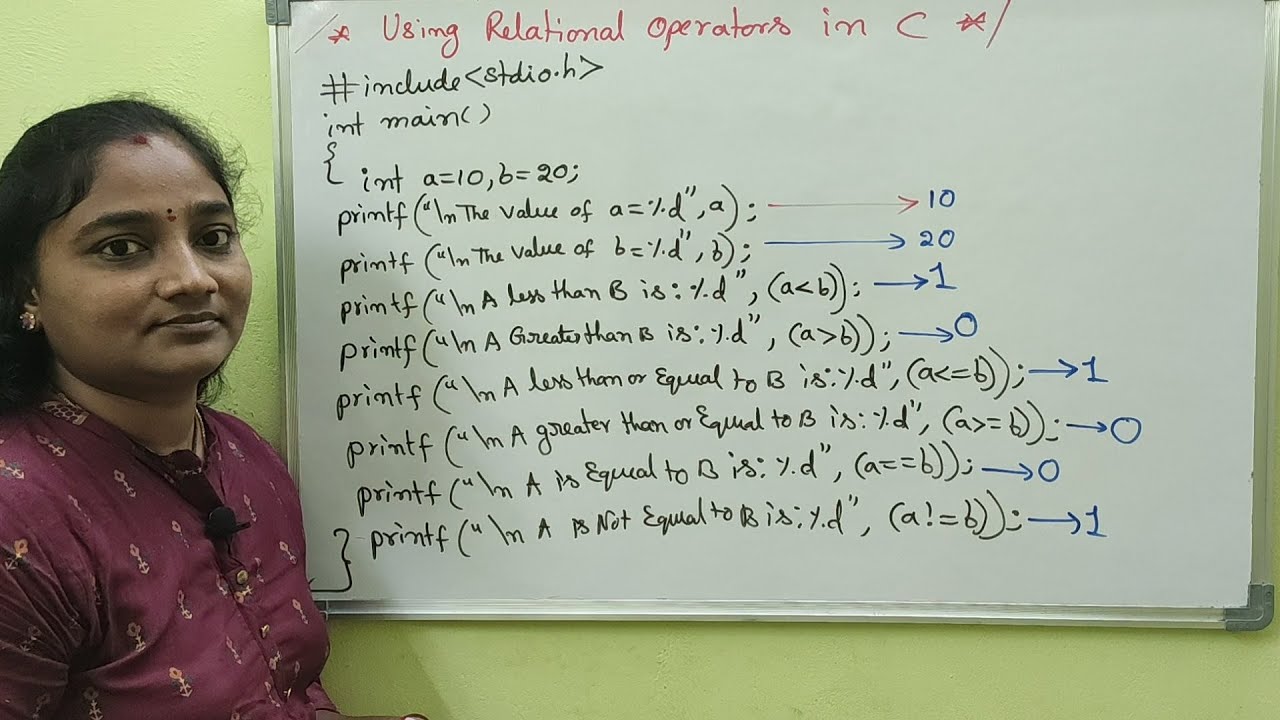 /* Using Relational Operators in C */
#include<stdio.h>
int main()
{
int a=10,b=20;
printf("\n The Value of a=%d",a); → 10
printf("\n The Value of b=%d",b); → 20
printf("\n A less than B is:%d",(a<b)); → 1
printf("\n A Greaterthan B is:%d",(a>b)); → 0
printf("\n A less than or Equal to B is:%d",(a<=b)); → 1
printf("\n A greater than or Equal to B is:%d",(a>=b)); → 0
printf("\n A is Equal to B is:%d",(a==b)); → 0
printf("\n A is Not Equal to B is:%d",(a!=b)); → 1
}